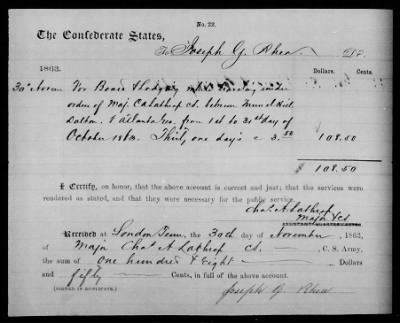 No. 22.
The Confederate States,
To Joseph G. Rhea Dr.
1863. Dollars. Cents.
30th Novem For Board & Lodging whilst
order of Maj. C A Lathrop Cs. between Tunnel Hill
Dalton & Atlanta Ga, from 1st to 31st day of
October 1863. Thirty one day's @ 3.50 108.50
$ 108.50
I Certify, on honor, that the above account is correct and just; that the services were
rendered as stated, and that they were necessary for the public service.
Chas. A Lathrop
Major & Cs
Received at Loudon Tenn. the 30th day of November 1863,
of Major Chas. A Lathrop Cs. , C. S. Army,
the sum of One hundred & Eight Dollars,
and fifty Cents, in full of the above account.
(SIGNED IN DUPLICATE.) Joseph G. Rhea